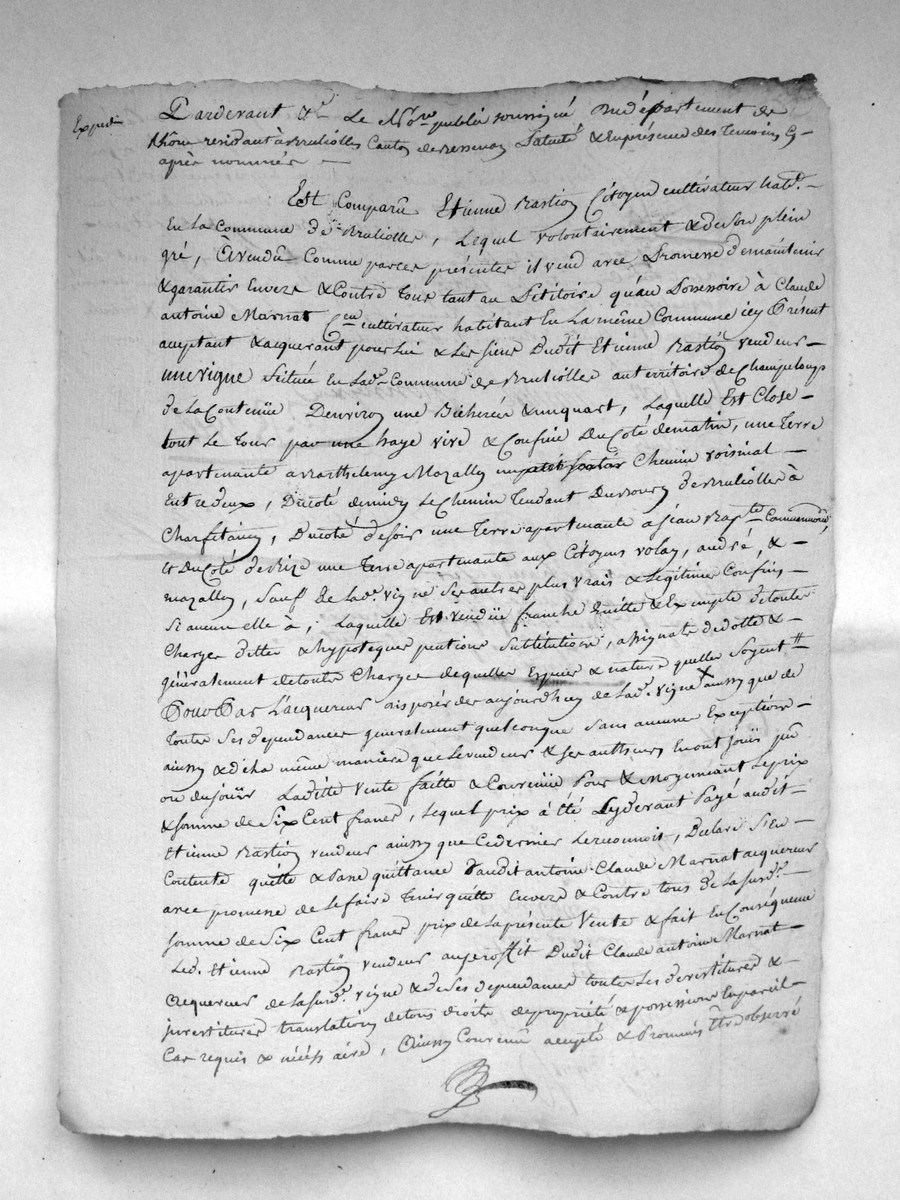 Expedié
Pardevant &c Le No.re public soussigné, Au département du
Rhône residant à Brulliolles Canton de Bessenay Patenté & En présence des Temoins Cy
après nommés —
Est Comparû Etienne Rastion Citoyen cultivateur hab.t
En La Commune de Brulliolles, Lequel volontairement & de son plein
gré, A vendû Comme par ces présentes il vend avec Promesse de maintenir
& garantir Envers & Contre Tous tant au Pétitoire qu'au Possessoire à Claude
antoine Marnat C.en cultivateur habitant En La même Commune icy Présent
aceptant & acquerant pour Lui & Les siens Dudit Etienne Rastion vendeur
une vigne Située En Lad.e Commune de Brulliolles au territoire de Champlong
de La Contenüe D'environ une Bicherée & un quart, Laquelle Est Close
tout Le Tour par une haye vive & Confine Du Coté de matin, une Terre
apartenante a Barthelemy Mazallon Chemin voisinal
Entre deux, Du coté de midy Le Chemin Tendant Du Bourg de Brulliolles à
Du coté de soir une Terre apartenante a Jean Bap.te
Et Du Coté de Bize une Terre apartenante aux Citoyens volay, andré, &
mazallon, Sauf de Lad.e vigne Ses autres plus vrais & Légitimes Confins
Si aucun elle à, Laquelle Est vendüe franche Quitte & Exempte de toutes
Charges dettes & hypoteques pentions Substitutions, assignats de dotte &
généralement de toute Charges de quelles Espece & nature quelles Soyent
Pour Par L'acquereur disposer des aujourd'huy de Lad.e vigne aussy que de
toutes Ses dependances generalement quelconque Sans aucune Exception
ainsy & de la même manière que Le vendeur & ses autheurs En ont Joüis pû
ou du Joüir Ladite Vente faitte & Convenüe Pour & Moyennant Le prix
& somme de Six Cent francs, Lequel prix à été Cy devant Payé audit
Etienne Rastion vendeur ainsy que Ce dernier Le reconnoit, Declare S'En
Contente quitte & Passe quittance Dudit antoine Claude Marnat acquereur
avec promesse de Le faire Tenir quitte Envers & Contre tous De La susd.e
somme de Six Cent francs prix de La présente Vente & fait En Conséquence
Led. Etienne Rastion vendeur au profit Dudit Claude antoine Marnat
Acquereur de La susd.e vigne & de Ses dependances toutes Les devestitures &
investitures translations de tous droits de propriété & possessions En pareil
Cas requis & nécéssaires, Ainsy Convenû acepté & Promis Etre observé